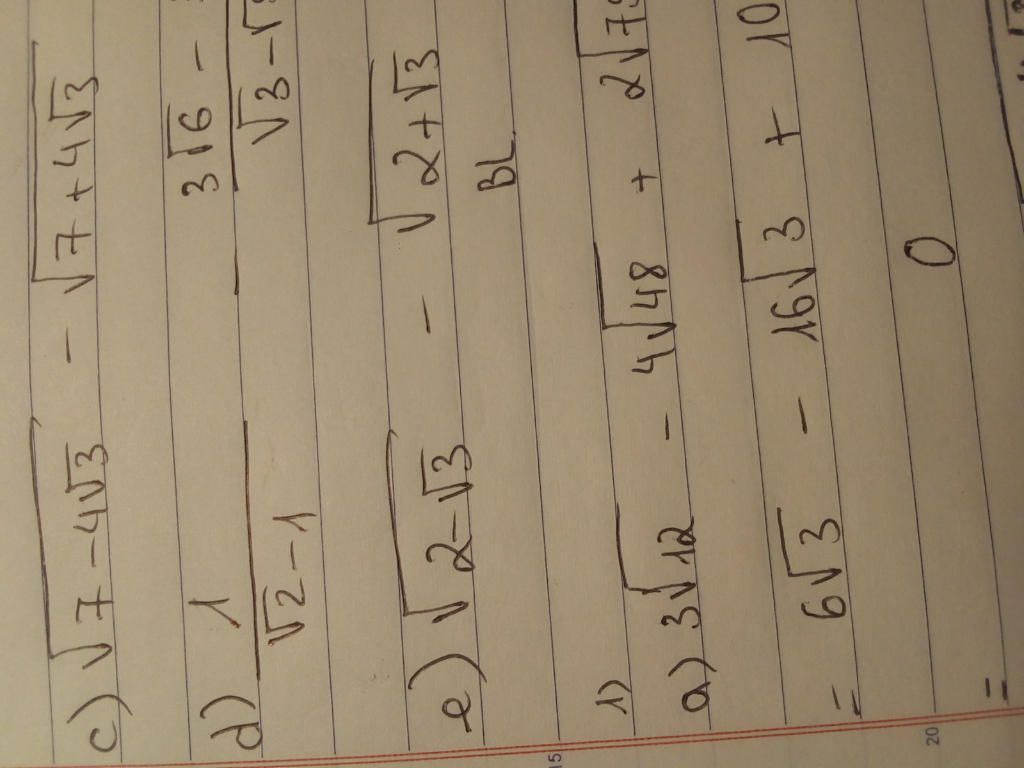 c) √7-4√3 - √7+4√3
d) 1/√2-1 - 3√6 - /√3-√
e) √2-√3 - √2+√3
BL
1)
a) 3√12 - 4√48 + 2√7
= 6√3 - 16√3 + 10
= 0
15
20